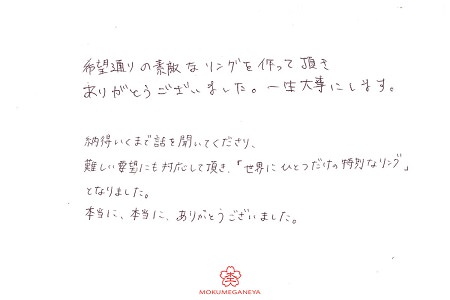 希望通りの素敵なリングを作って頂き
ありがとうございました。一生大事にします。
納得いくまで話を聞いてくださり、
難しい要望にも対応して頂き、「世界にひとつだけの特別なリング」
となりました。
本当に、本当に、ありがとうございました。
MOKUMEGANEYA